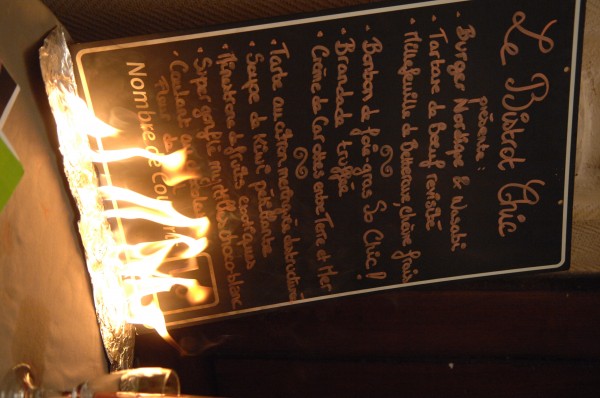 Le Bistrot Chic
présente :
• Burger Nordique & Wasabi
• Tartare de Bœuf revisité
• Millefeuille de Betterave, chèvre frais
• Bonbon de foie-gras So Chic !
• Brandade truffée
• Crème de Carottes entre Terre et Mer
• Tarte au citron meringuée destructurée
• Soupe de Kiwi pétillante
• de fruits exotiques
• Super gonflé myrtilles choco-blanc
• Coulant
Fleur de
Nombre de Couverts